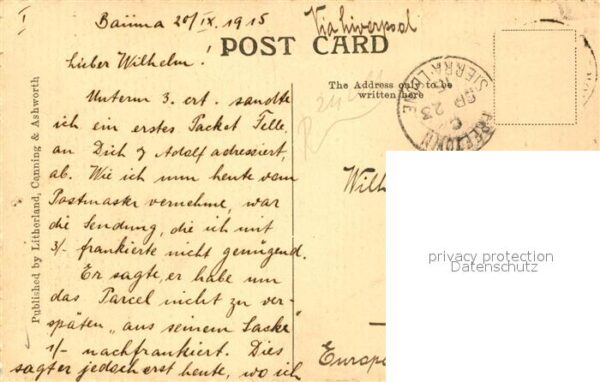 I
Baiima 20/IX. 1915
Via Liverpool
POST CARD
Lieber Wilhelm!
The Address only to be
written here
Published by Litherland, Canning & Ashworth
FREETOWN
SIERRA LEONE
SP 23
Unterm 3. crt. sandte
ich ein erstes Packet Felle,
an Dich & Adolf adressiert,
ab. Wie ich nun heute vom
Postmaster vernehme, war
die Sendung, die ich mit
3/- frankierte nicht genügend.
Er sagte, er habe um
das Parcel nicht zu ver-
späten „aus seinem Sacke"
1/- nachfrankiert. Dies
sagt er jedoch erst heute, wo ich
Wilh
Europ
privacy protection
Datenschutz